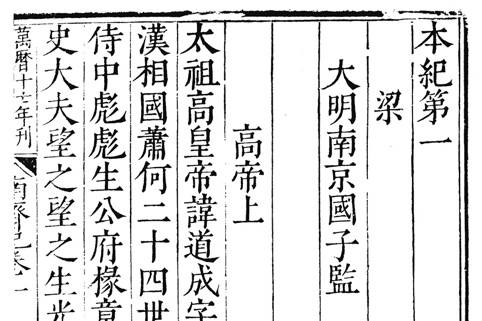 本紀第一
梁
大明南京國子監
高帝上
太祖高皇帝諱道成字
漢相國蕭何二十四世
侍中彪彪生公府椽章
史大夫望之望之生光
萬曆十六年刊